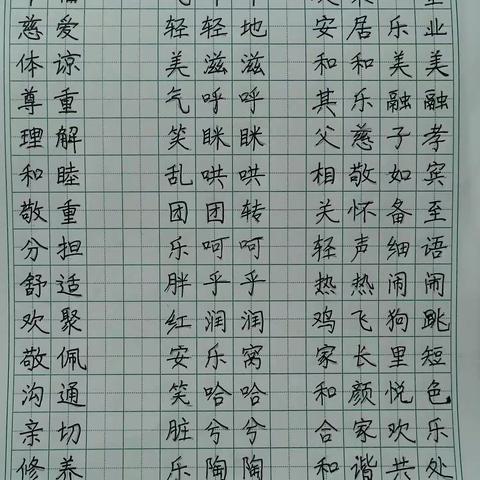 慈爱 轻轻地 安居乐业
体谅 美滋滋 和和美美
尊重 气呼呼 其乐融融
理解 笑眯眯 父慈子孝
和睦 乱哄哄 相敬如宾
敬重 团团转 关怀备至
分担 乐呵呵 轻声细语
舒适 胖乎乎 热热闹闹
欢聚 红润润 鸡飞狗跳
敬佩 安乐窝 家长里短
沟通 笑哈哈 和颜悦色
亲切 脏兮兮 合家欢乐
修养 乐陶陶 和谐共处